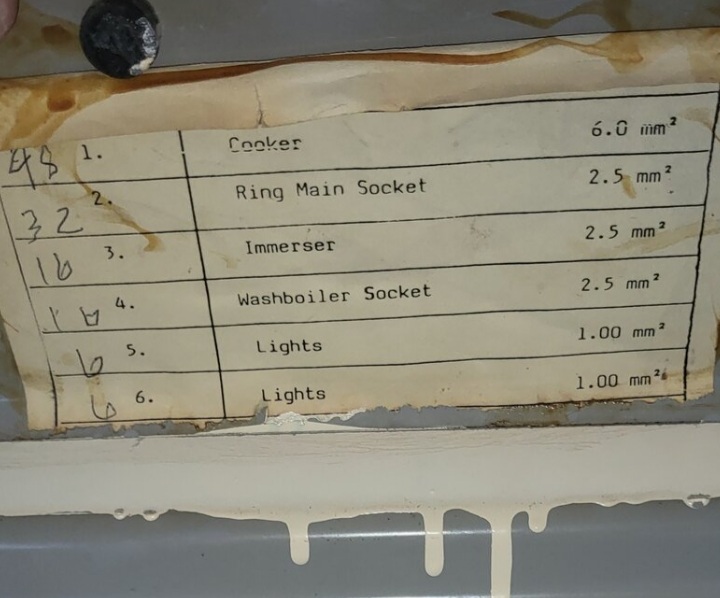 45 1. Cooker 6.0 mm²
32 2. Ring Main Socket 2.5 mm²
16 3. Immerser 2.5 mm²
16 4. Washboiler Socket 2.5 mm²
6 5. Lights 1.00 mm²
6 6. Lights 1.00 mm²